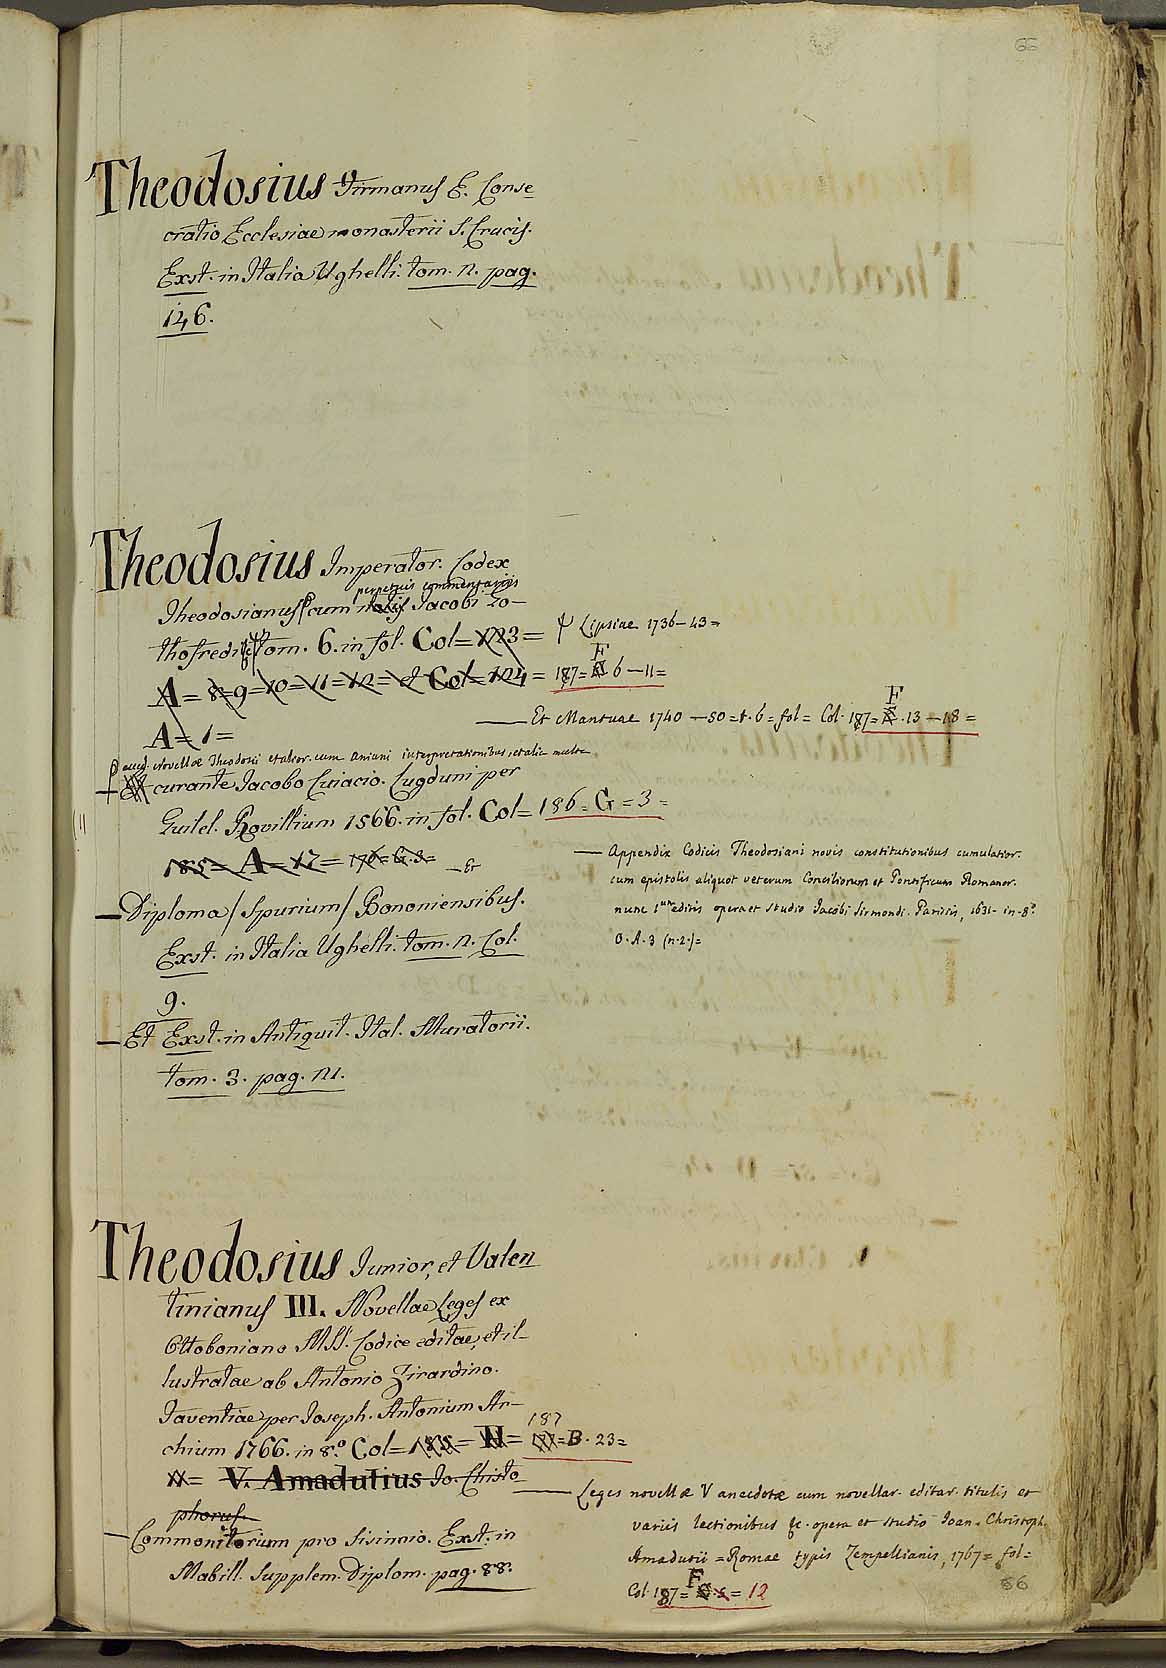 66
Theodosius Firmanus E. Conse=
cratio Ecclesiae monasterii S. Crucis.
Exst. in Italia Ughelli. tom. 2. pag.
146.
Theodosius Imperator. Codex
perpetuis commentariis
Theodosianus cum notis Jacobi Go-
thofredi tom. 6. in fol. Col= 123=
Lipsiae 1736-43=
A= 8=9=10=11=12= et Col= 124=
187= F 6-11=
Et Mantuae 1740-50=t.6=fol= Col. 187= F. 13-18=
A= 1=
acced. Novellae Theodosii et alior. cum Aniani interpretationibus, et alia multa
curante Jacobo Cuiacio. Lugduni per
Guilel. Rovillium 1566. in fol. Col= 186= G= 3=
185= A= 17= 170= G.3=
Et
Appendix Codicis Theodosiani novis constitutionibus cumulatior.
cum epistolis aliquot veterum Conciliorum et Pontificum Romanor.
nunc 1um editis opera et studio Jacobi Sirmondi. Parisiis, 1631- in-8°
O. A. 3 (n. 2.)=
Diploma / Spurium / Bononiensibus.
Exst. in Italia Ughelli. tom. 2. Col.
9.
Et Exst. in Antiquit. Ital. Muratorii.
tom. 3. pag. 21.
Theodosius Junior, et Valen
tinianus III. Novellae Leges ex
Ottoboniano MSS. Codice editae, et il-
lustratae ab Antonio Zirardino.
Faventiae per Joseph. Antonium Ar-
chium 1766. in 8.° Col= 185= H=
187
=B. 23=
= V. Amadutius Jo. Christo
phorus.
Leges novellae V anecdotae cum novellar. editar. titulis et
variis lectionibus &c. opera et studio Joan. Christoph.
Amadutii = Romae typis Zempellianis, 1767= fol=
Col. 187= F = 12
Commonitorium pro Sisinnio. Exst. in
Mabill. Supplem. Diplom. pag. 88.
66